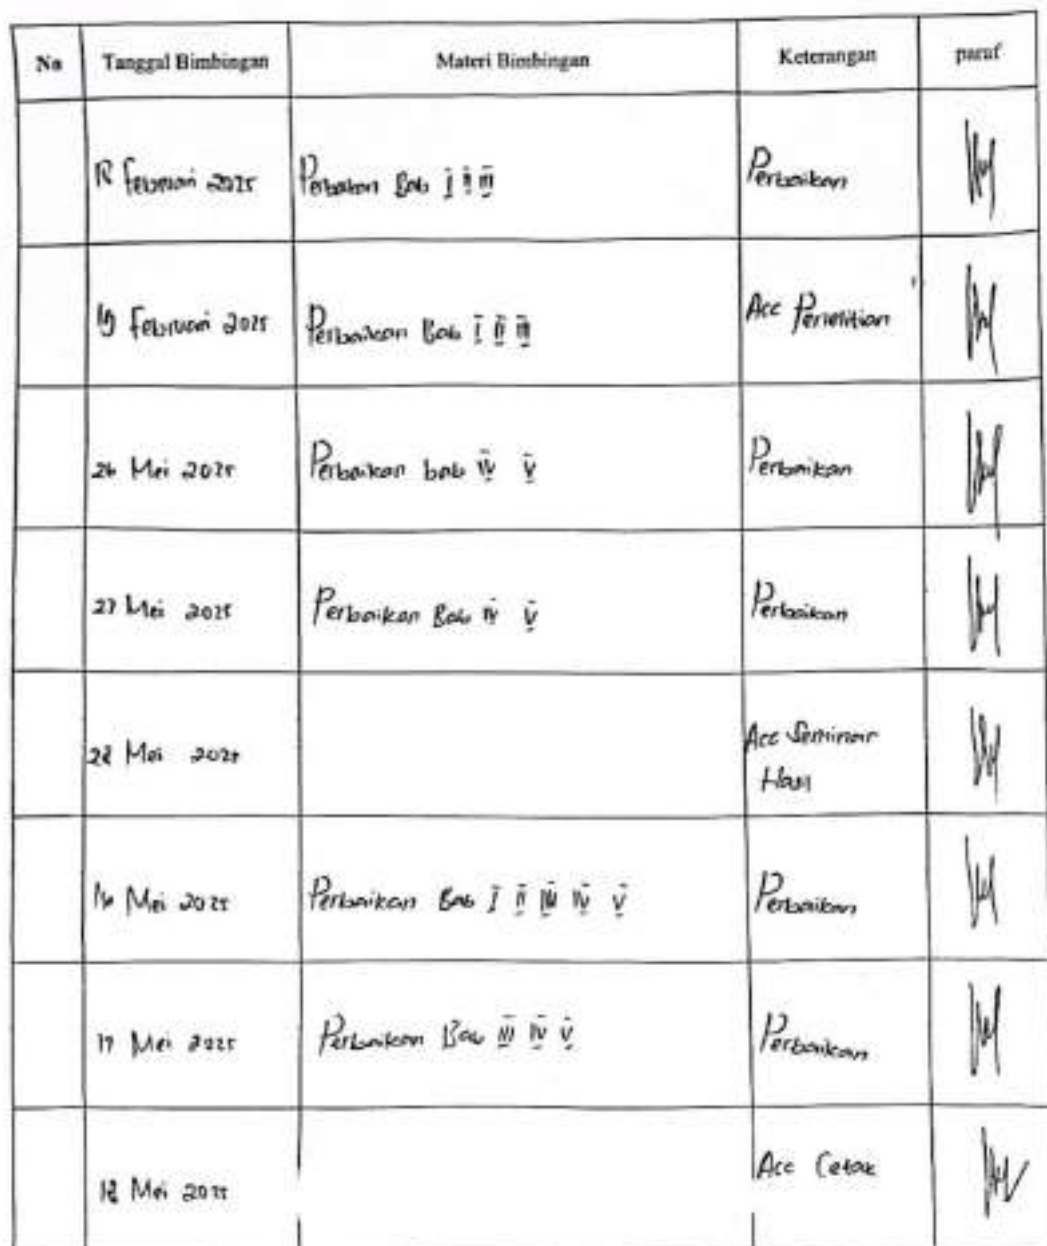 No Tanggal Bimbingan Materi Bimbingan Keterangan paraf
12 Februari 2025 Perbaikan Bab I II III Perbaikan
19 Februari 2025 Perbaikan Bab I II III Acc Penelitian
26 Mei 2025 Perbaikan bab IV V Perbaikan
27 Mei 2025 Perbaikan Bab IV V Perbaikan
28 Mei 2025 Acc Seminar
Hasil
16 Mei 2025 Perbaikan Bab I II III IV V Perbaikan
17 Mei 2025 Perbaikan Bab III IV V Perbaikan
18 Mei 2025 Acc Cetak